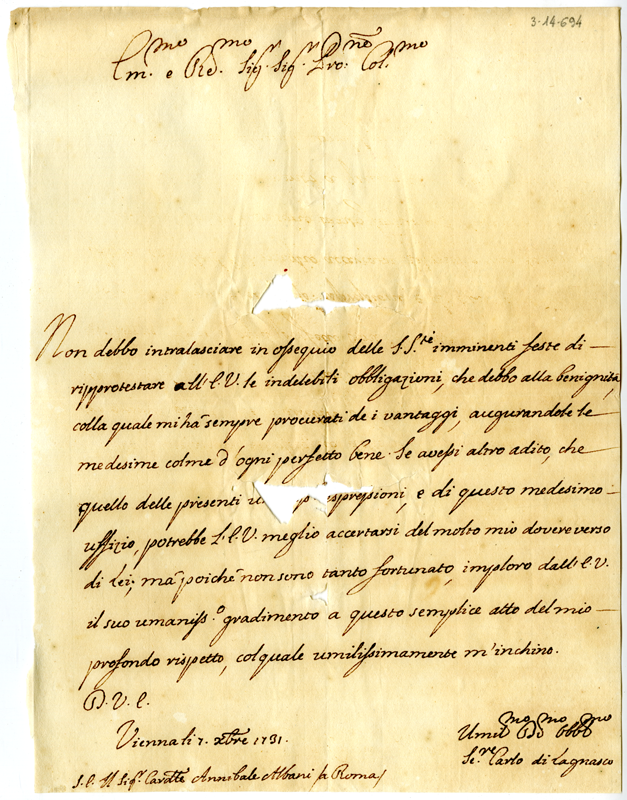 3-14-694
Em.mo e Re.mo Sig.r Sig.r Pro.n Dne Col.mo
Non debbo intralasciare in ossequio delle S.S.te imminenti feste di
ripprotestare all'E.V. le indelebili obbligazioni, che debbo alla benignità,
colla quale mi hà sempre procurati de i vantaggi, augurandole le
medesime colme d'ogni perfetto bene. Se avessi altro adito, che
quello delle presenti espressioni, e di questo medesimo
uffizio, potrebbe L.E.V. meglio accertarsi del molto mio dovere verso
di Lei; mà poiche non sono tanto fortunato, imploro dall'E.V.
il suo umaniss.o gradimento a questo semplice atto del mio
profondo rispetto, col quale umilissimamente m'inchino.
D. V. E.
Vienna li 7. xbre 1731.
Umil.mo Do.mo Obb.mo
Se.re Carlo di Lagnasco
S.E. Il Sig.r Cardle Annibale Albani /a Roma/